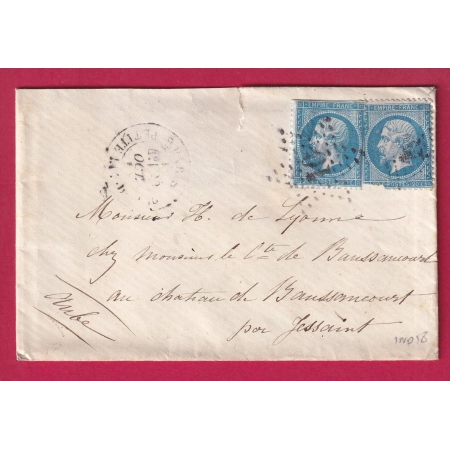 EMPIRE FRANC
EMPIRE FRANC
PETITE
OCT
Monsieur H. de Lyonne
chez monsieur le Cte de Baussancourt
au chateau de Baussancourt
par Jessaint
Aube